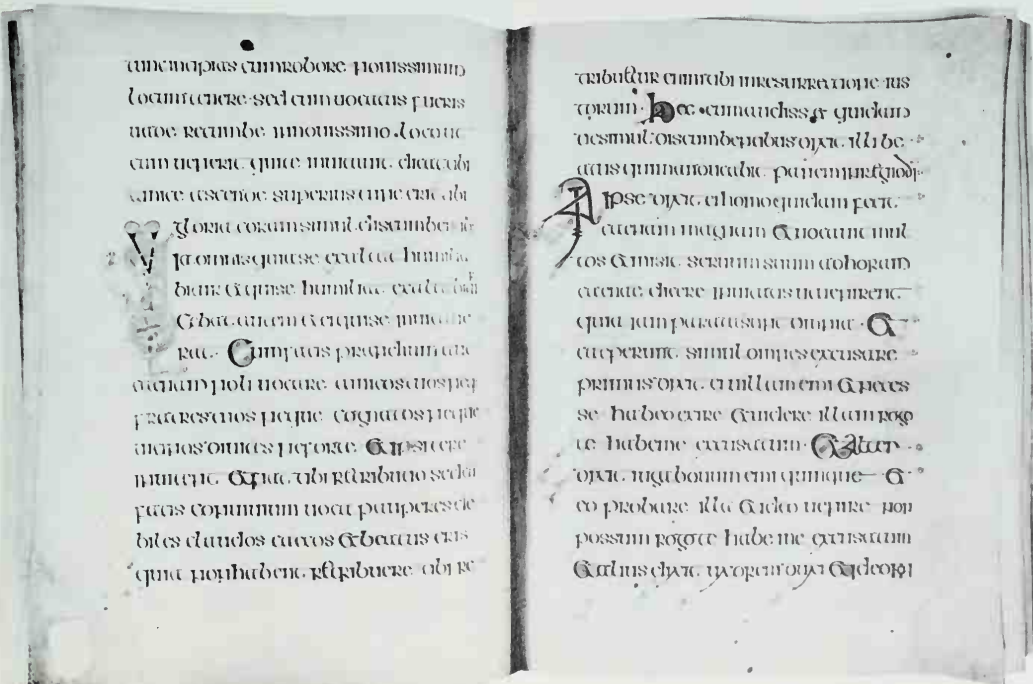 tunc incipias cum robore nouissimum
locum tenere sed cum uocatus fueris
uade recumbe innouissimo loco ut
cum uenerit quite inuitauit dicat tibi
amice ascende superius tunc erit tibi
gloria coram simul discumbentib
omnis quise exaltat humilia
bitur &quise humiliat exaltabitur
autem eiquise inuitaue
rat Cum facis prandium aut
caenam noli uocare amicos tuos neq
fratres tuos neque cognatos neque
uicinos diuites neforte &ipsi tere
inuitent &fiat tibi retributio sedcu
facis conuiuium uoca pauperes de
biles claudos caecos &beatus eris
quia nonhabent retribuere tibi re
tribuetur enim tibi inresurrectione ius
torum Haec cumaudiss& quidam
desimul discumbentibus dixit illi be
atus quimanducabit panem inregnodi
At ipse dixit ei homo quidam fecit
caenam magnam &uocauit mul
tos &misit seruum suum adhoram
caenae dicere inuitatis utuenirent
quia iam parata sunt omnia &
caeperunt simul omnes excusare
primus dixit ei uillam emi &neces
se habeo exire &uidere illam rogo
te habeme excusatum &alter
dixit iuga bouum emi quinque &
eo probare illa &ideo uenire non
possum rogote habe me excusatum
&alius dixit uxorem duxi &ideo